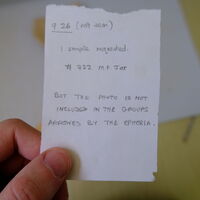 9 26 (not seen)
1 sample requested.
# 222 M.F Jar
BUT THE PHOTO IS NOT
INCLUDED IN THE GROUPS
APPROVED BY THE EPHORIA.